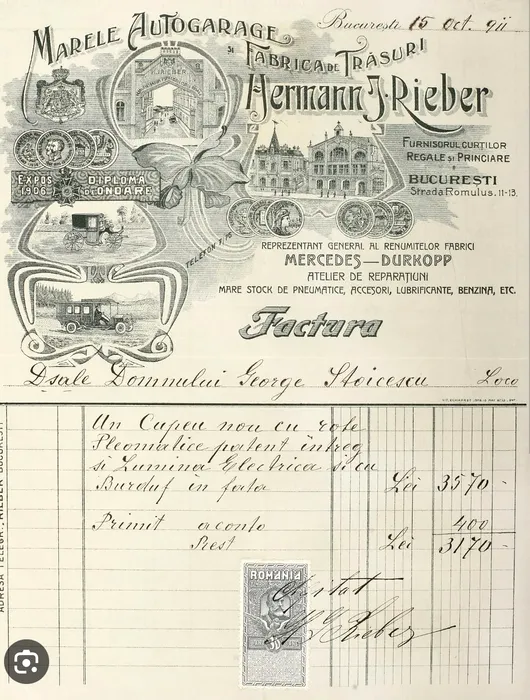 Bucuresti 15 Oct. 911
MARELE AUTOGARAGE
și
FABRICA DE TRĂSURI
Hermann J. Rieber
H. RIEBER
FURNISORUL CURȚILOR
REGALE ȘI PRINCIARE
BUCUREȘTI
Strada Romulus. 11-13.
EXPOS. 1906
DIPLOMA DE ONOARE
TELEFON
REPREZENTANT GENERAL AL RENUMITELOR FABRICI
MERCEDES—DURKOPP
ATELIER DE REPARAȚIUNI
MARE STOCK DE PNEUMATICE, ACCESORI, LUBRIFIANTE, BENZINA, ETC.
Factura
Dsale Domnului George Stoicescu Loco
Un Cupeu nou cu rote
Pleomatice patent intreg
si Lumina Electrica si cu
Burduf in fata Lei 3570-
Primit aconto 400
Rest Lei 3170-
ADRESA TELEGR.: RIEBER BUCUREȘTI
ROMANIA
30
Achitat
Rieber